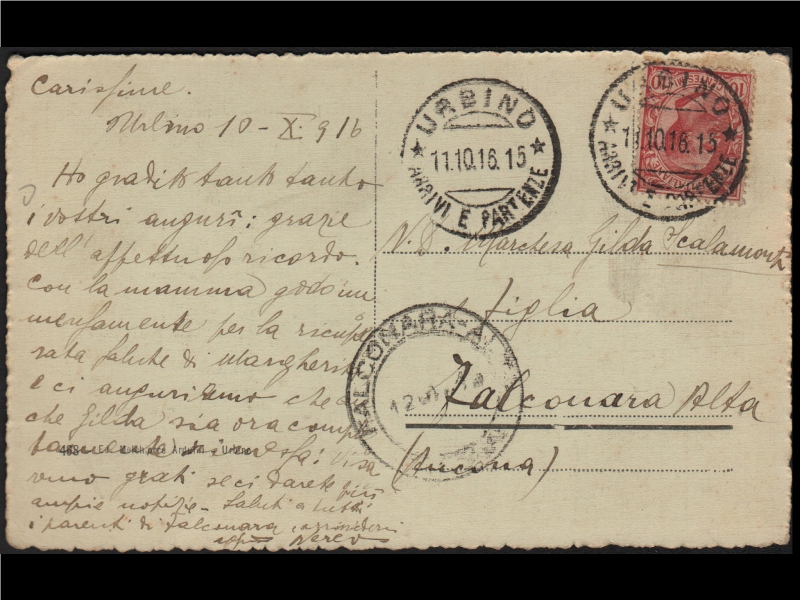 Carissime.
Urbino 10 - X. 916
Ho gradito tanto tanto
i vostri auguri: grazie
dell' affettuoso ricordo.
Con la mamma godo im
mensamente per la ricupe
rata salute di Margherita
e ci auguriamo che a
che Gilda sia ora comple
tamente Vi sa
remo grati se ci darete più
ampie notizie - Saluti a tutti
i parenti di Falconara,
Nereo
468 - Ed. Urbino
URBINO
11.10.16.15
ARRIVI E PARTENZE
URBINO
11.10.16.15
ARRIVI E PARTENZE
N. D. Marchesa Gilda Scalamonti
e figlia
Falconara Alta
(Ancona)
FALCONARA AL
12